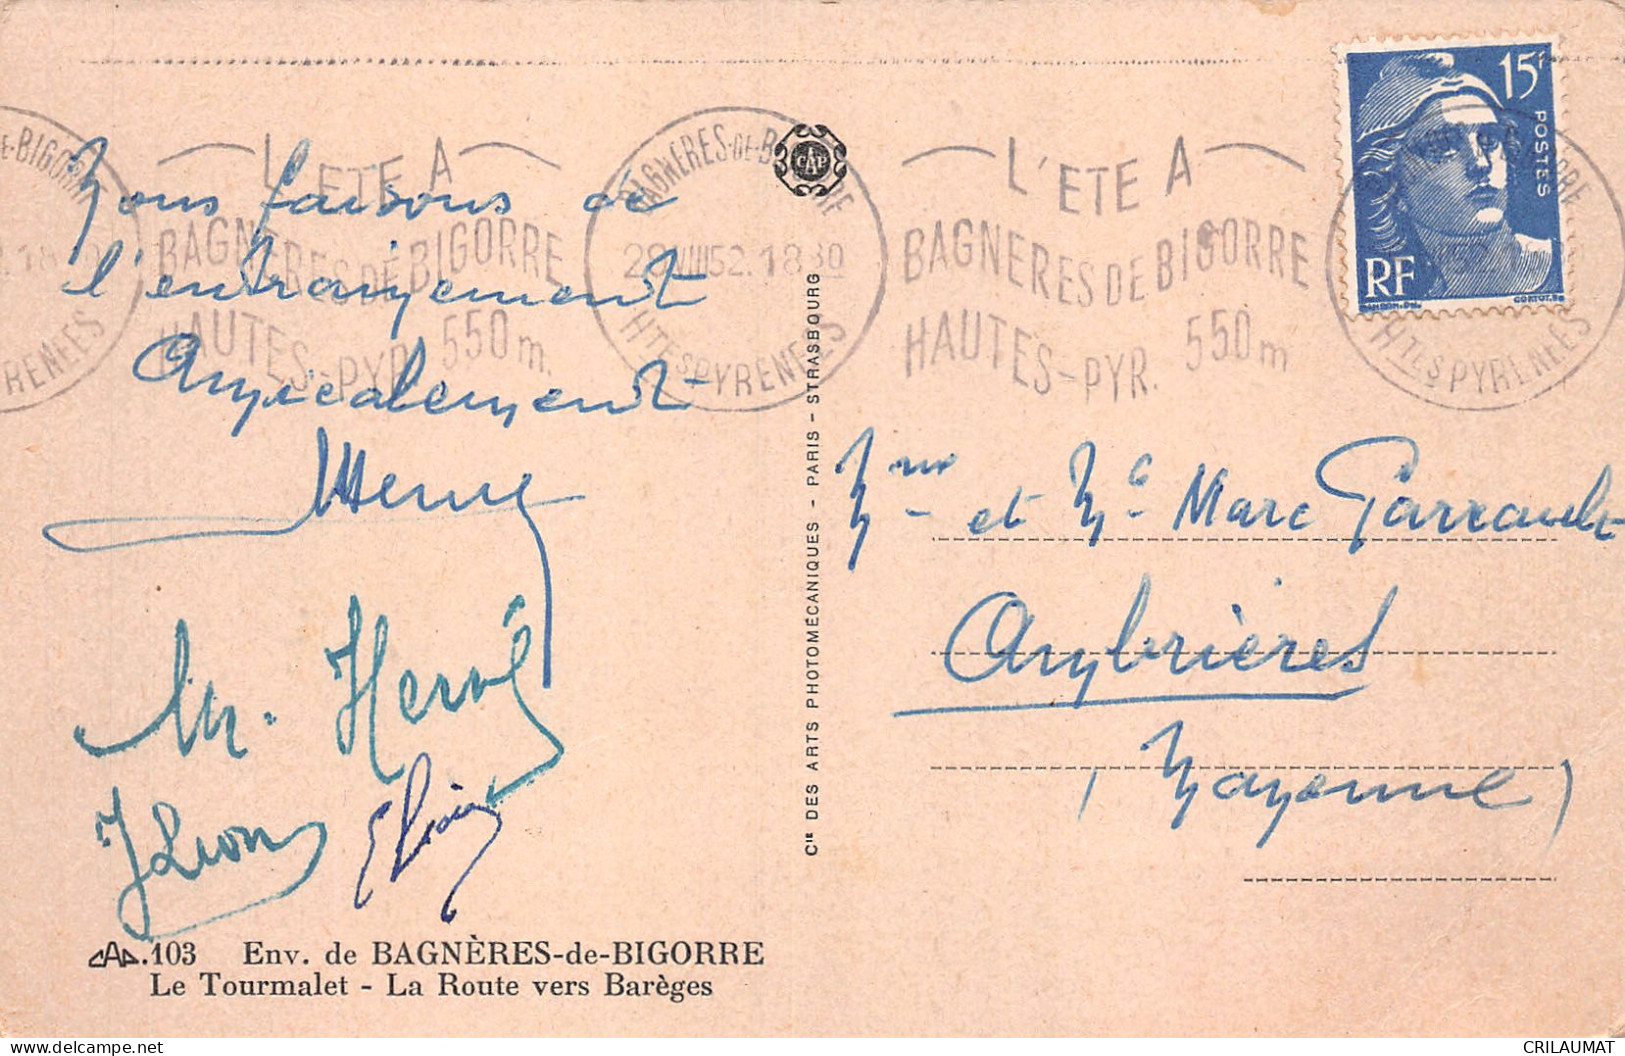 L'ETE A
BAGNERES DE BIGORRE
HAUTES-PYR. 550 m.
BAGNERES-DE-BIGORRE
28 VIII 52. 18 30
Htes PYRENEES
L'ETE A
BAGNERES DE BIGORRE
HAUTES-PYR. 550 m
Htes PYRENEES
15F
POSTES
RF
CAP
Nous faisons de
l'entrainement
Amicalement
M. Hervé
J Leon
CAP.103 Env. de BAGNÈRES-de-BIGORRE
Le Tourmalet - La Route vers Barèges
Cie DES ARTS PHOTOMÉCANIQUES - PARIS - STRASBOURG
et Marc
Ambrières
(Mayenne)
CRILAUMAT